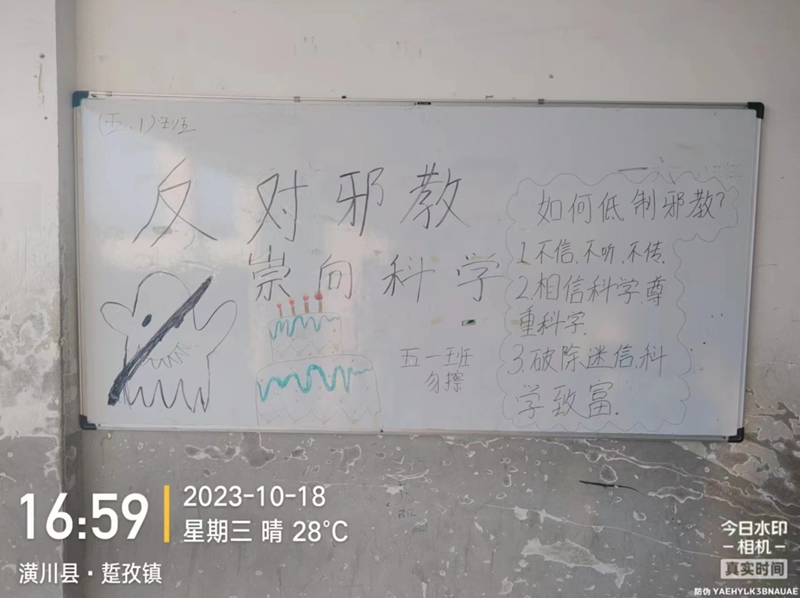 (五、1)班
反对邪教
崇向科学
五一班
勿擦
如何低制邪教?
1.不信.不听.不传.
2.相信科学尊
重科字.
3.破除迷信.科
学致富.
16:59
2023-10-18
星期三 晴 28°C
潢川县·踅孜镇
今日水印
-相机-
真实时间
防伪 YAEHYLK3BNAUAE